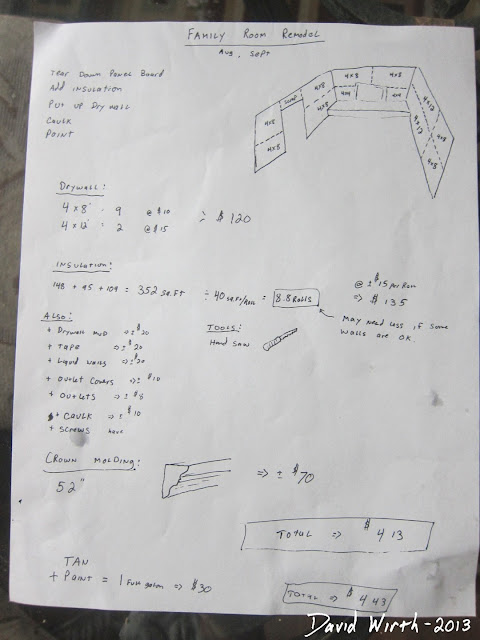 FAMILY ROOM REMODEL
AUG, SEPT
TEAR DOWN PANEL BOARD
ADD INSULATION
PUT UP DRYWALL
CAULK
PAINT
4x8 SCRAP 4x8 4x8 4x8
4x8 4x8 4x4 4x4 4x12
4x12 4x8 4x8
DRYWALL:
4 x 8' = 9 @ $10 => $120
4 x 12' = 2 @ $15
INSULATION:
148 + 95 + 109 = 352 SQ.FT ÷ 40 SQ.FT/ROLL = 8.8 ROLLS @ ± $15 PER ROLL
=> $135
MAY NEED LESS IF SOME
WALLS ARE OK
ALSO:
+ DRYWALL MUD => ± $20
+ TAPE => ± $20
+ LIQUID NAILS => ± $20
+ OUTLET COVERS => ± $10
+ OUTLETS => ± $8
+ CAULK => ± $10
+ SCREWS have
TOOLS:
HAND SAW
CROWN MOLDING:
52" => ± $70
TOTAL => $413
TAN
+ PAINT = 1 FULL gallon => $30
TOTAL => $443
David Wirth - 2013